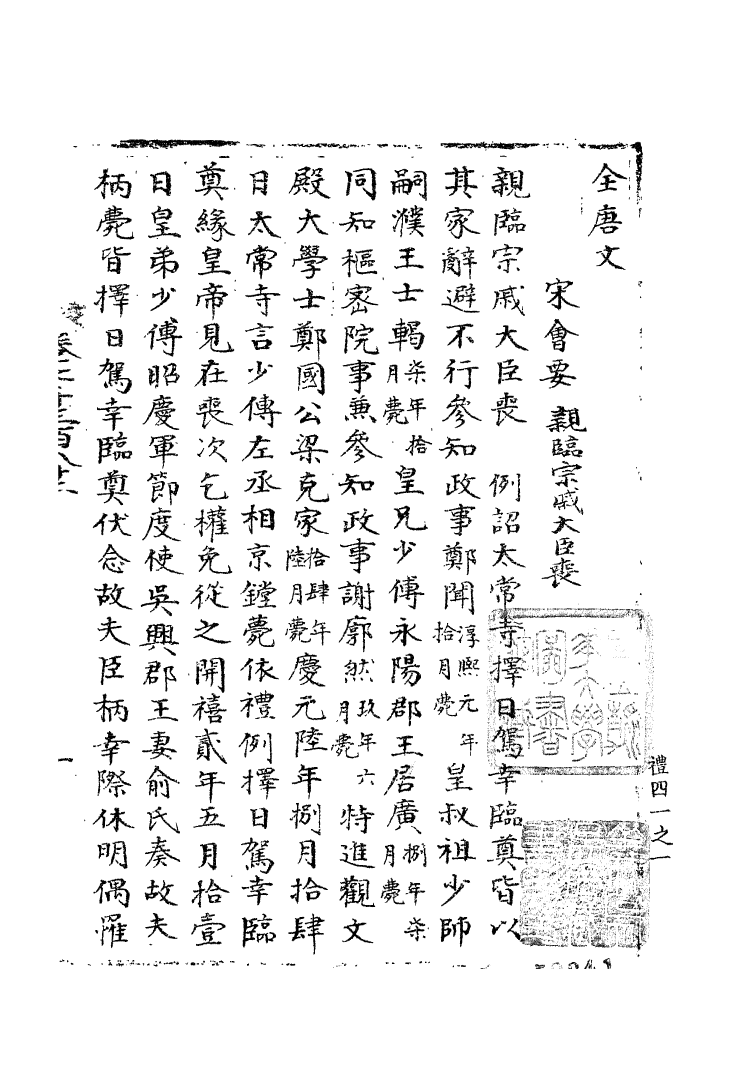 全唐文
宋會要 親臨宗戚大臣喪
親臨宗戚大臣喪 例詔太常寺擇日駕幸臨奠皆以
其家辭避不行參知政事鄭聞淳熙元年拾月薨皇叔祖少師
嗣濮王士輵柒年拾月薨皇兄少傅永陽郡王居廣捌年柒月薨
同知樞密院事兼參知政事謝廓然玖年六月薨特進觀文
殿大學士鄭國公梁克家拾肆年陸月薨慶元陸年捌月拾肆
日太常寺言少傅左丞相京鏜薨依禮例擇日駕幸臨
奠緣皇帝見在喪次乞權免從之開禧貳年五月拾壹
日皇弟少傅昭慶軍節度使吳興郡王妻俞氏奏故夫
柄薨皆擇日駕幸臨奠伏念故夫臣柄幸際休明偶罹
一
禮四一之一